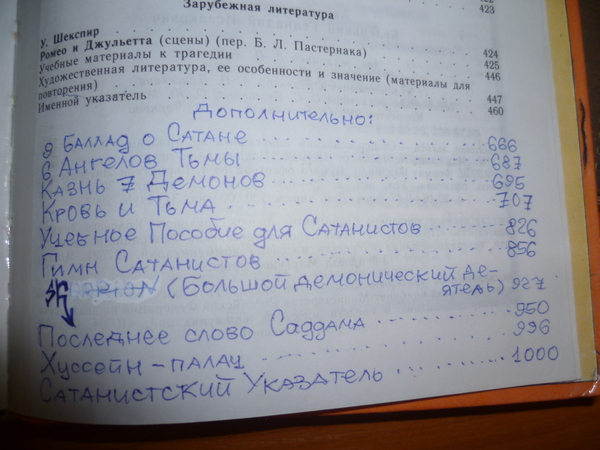 422
Зарубежная литература 423
У. Шекспир
Ромео и Джульетта (сцены) (пер. Б. Л. Пастернака) 424
Учебные материалы к трагедии 425
Художественная литература, ее особенности и значение (материалы для 446
повторения) 447
Именной указатель 460
Дополнительно:
9 Баллад о Сатане 666
6 Ангелов Тьмы 687
Казнь 7 Демонов 695
Кровь и Тьма 707
Учебное Пособие для Сатанистов 826
Гимн Сатанистов 856
(Большой демонический де-
ятель) 927
Последнее слово Саддама 950
Хуссейн - палач 996
Сатанистский Указатель 1000